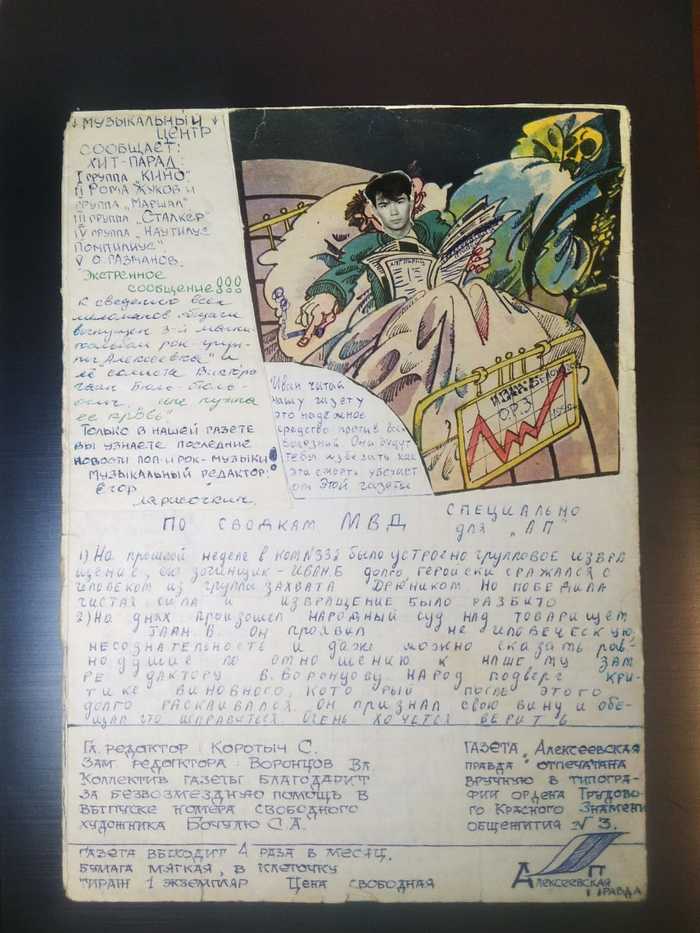 МУЗЫКАЛЬНЫЙ
ЦЕНТР
СООБЩАЕТ:
ХИТ-ПАРАД:
I ГРУППА "КИНО"
II РОМА ЖУКОВ И
ГРУППА "МАРШАЛ"
III ГРУППА "СТАЛКЕР"
IV ГРУППА "НАУТИЛУС
ПОМПИЛИУС"
V О. ГАЗМАНОВ.
ЭКСТРЕННОЕ
СООБЩЕНИЕ!!!
К сведению всех
меломанов
выпущен 3-й
рок-груп-
пы "Алексеевка" и
её солиста
ей нужна
ее кровь"
ТОЛЬКО В НАШЕЙ ГАЗЕТЕ
ВЫ УЗНАЕТЕ ПОСЛЕДНИЕ
НОВОСТИ ПОП И РОК-МУЗЫКИ!
МУЗЫКАЛЬНЫЙ РЕДАКТОР:
ЕГОР
ЛАРИСОЧКИН.
ИВАН
ОРЗ
Иван читай
нашу газету
это надёжное
средство против всех
болезней. Они будут
тебя избегать как
эта смерть убегает
от этой газеты
ПО СВОДКАМ МВД
СПЕЦИАЛЬНО
ДЛЯ "АП"
1) На прошлой неделе в ком №332 было устроено групповое извра
щение, его зачинщик - ИВАН.Б долго, геройски сражался с
человеком из группы захвата ДРЮНИКОМ. Но победила
чистая сила и извращение было разбито
2) На днях произошел народный суд над товарищем
В. Он проявил не человеческую,
несознательность и даже можно сказать рав-
нодушие по отношению к нашему зам
редактору В. Воронцову. Народ подверг кри-
тике виновного, который после этого
долго раскаивался. Он признал свою вину и обе-
щал что исправиться. Очень хочется верить
ГЛ. РЕДАКТОР КОРОТЫЧ С.
ЗАМ. РЕДОКТОРА ВОРОНЦОВ ВЛ.
КОЛЛЕКТИВ ГАЗЕТЫ БЛАГОДАРИТ
ЗА БЕЗВОЗМЕЗДНУЮ ПОМОЩЬ В
ВЫПУСКЕ НОМЕРА СВОБОДНОГО
ХУДОЖНИКА БОЧУЛЮ С.А.
ГАЗЕТА "АЛЕКСЕЕВСКАЯ
ПРАВДА" ОТПЕЧАТАНА
ВРУЧНУЮ В ТИПОГРА-
ФИИ ОРДЕНА ТРУДОВО-
ГО КРАСНОГО ЗНАМЕНИ
ОБЩЕЖИТИЯ №3.
ГАЗЕТА ВЫХОДИТ 4 РАЗА В МЕСЯЦ.
БУМАГА МЯГКАЯ, В КЛЕТОЧКУ
ТИРАЖ 1 ЭКЗЕМПЛЯР ЦЕНА СВОБОДНАЯ
АЛЕКСЕЕВСКАЯ
ПРАВДА